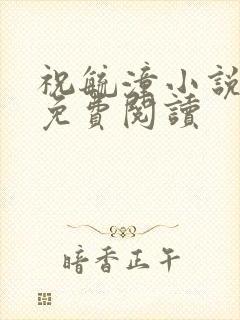 祝毓漳小說
免費閱讀
暗香正午